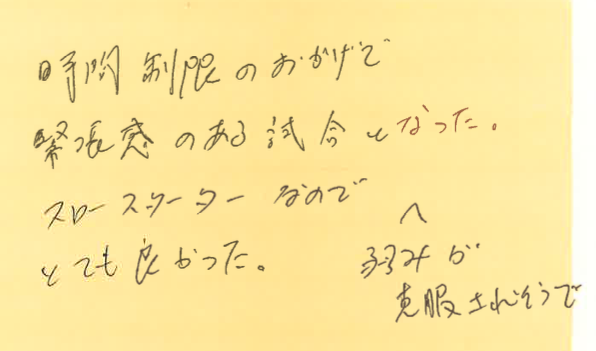 時間制限のおかげで
緊張感のある試合となった。
スロースターターなので
とても良かった。
弱みが
克服されそうで